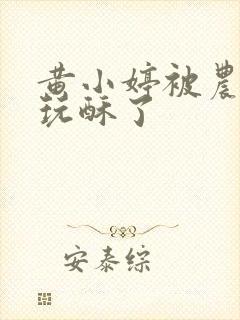 黄小婷被農
玩酥了
安泰综